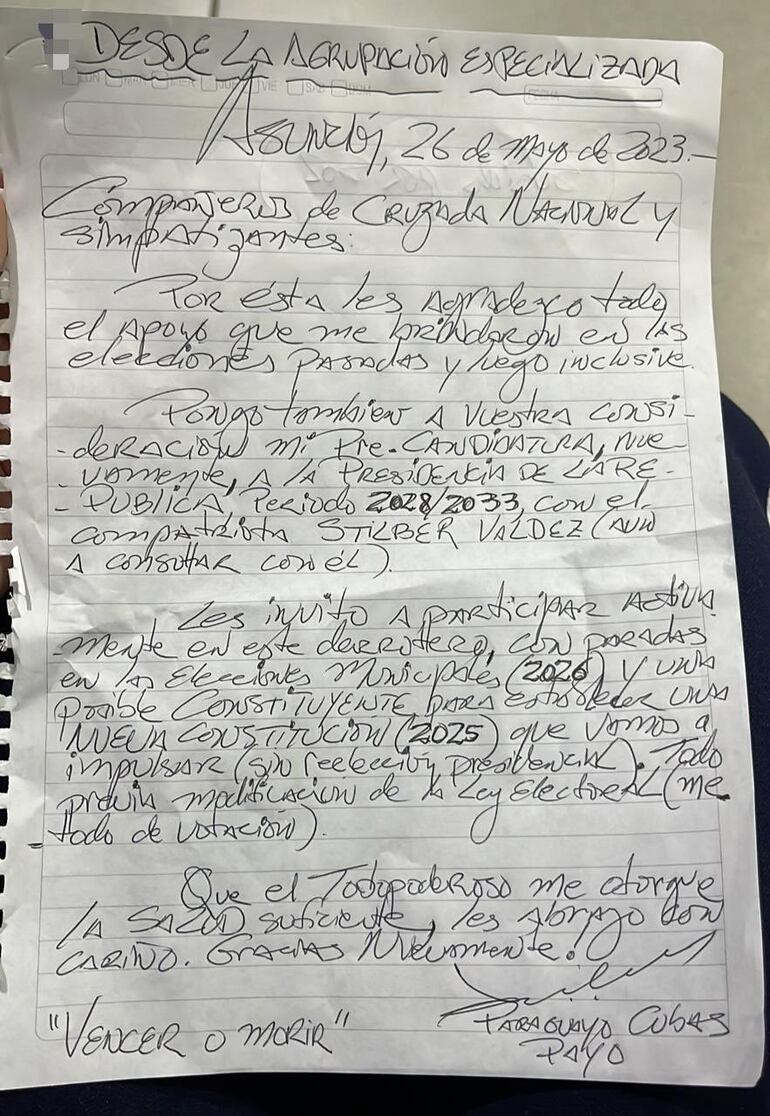 DESDE LA AGRUPACIÓN ESPECIALIZADA
LUN MAR MIER JUE VIE SAB DOM
FECHA
Asunción, 26 de mayo de 2023.-
Compañeros de Cruzada Nacional y
simpatizantes:
Por ésta les agradezco todo
el apoyo que me brindaron en las
elecciones pasadas y luego inclusive.
Pongo tambien a vuestra consi-
-deración mi Pre-CANDIDATURA, nue-
-vamente, a la PRESIDENCIA DE LA RE-
-PUBLICA, Periodo 2028/2033, con el
compatriota STILBER VALDEZ (AUN
A consultar con él).
Les invito a participar activa
-mente en este derrotero, con paradas
en las Elecciones Municipales (2026) y una
posible CONSTITUYENTE para establecer una
NUEVA CONSTITUCIÓN (2025) que vamos a
impulsar (sin reelección presidencial). Todo
previa modificación de la Ley Electoral (me
-todo de votación).
Que el Todopoderoso me otorgue
la SALUD suficiente, les abrazo con
CARIÑO. Gracias Nuevamente!
PARAGUAYO CUBAS
PAYO
"VENCER O MORIR"